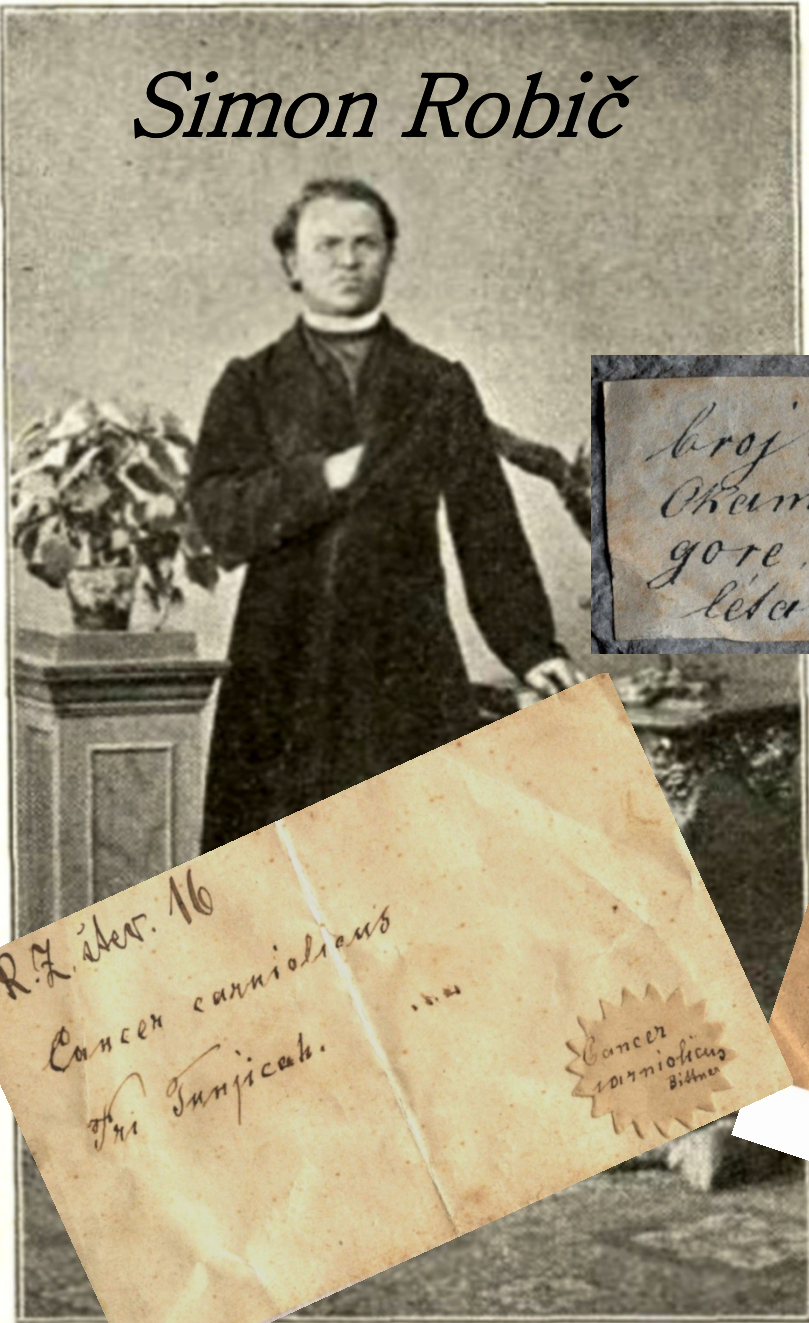 Simon Robič
broj
Okam
gore.
léta
R.Z. štev. 16
Cancer carniolicus
Pri Tunjicah.
Cancer
carniolicus
Bittner